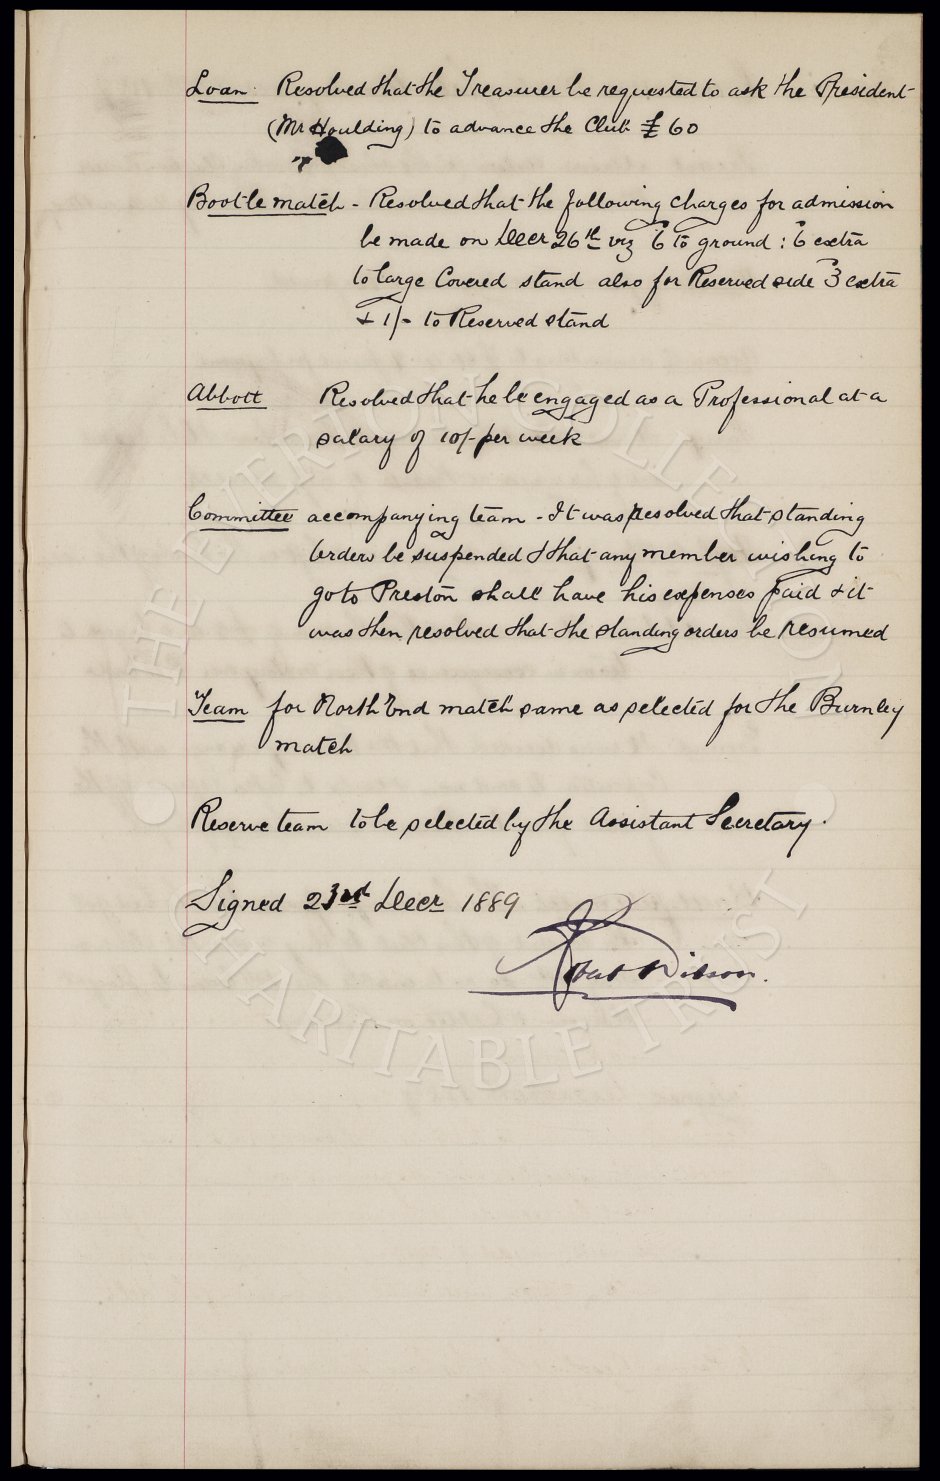 Loan Resolved that the Treasurer be requested to ask the President
(Mr Houlding) to advance the Club £60
Bootle match - Resolved that the following charges for admission
be made on Decr 26th viz 6 to ground : 6 extra
to large Covered stand also for Reserved side 3 extra
& 1/- to Reserved stand
Abbott Resolved that he be engaged as a Professional at a
salary of 10/- per week
Committee accompanying team - It was resolved that standing
orders be suspended & that any member wishing to
go to Preston shall have his expenses paid & it
was then resolved that the standing orders be resumed
Team for North End match same as selected for the Burnley
match
Reserve team to be selected by the Assistant Secretary.
Signed 23rd Decr 1889
Wilson.
THE EVERTON COLLECTION
CHARITABLE TRUST